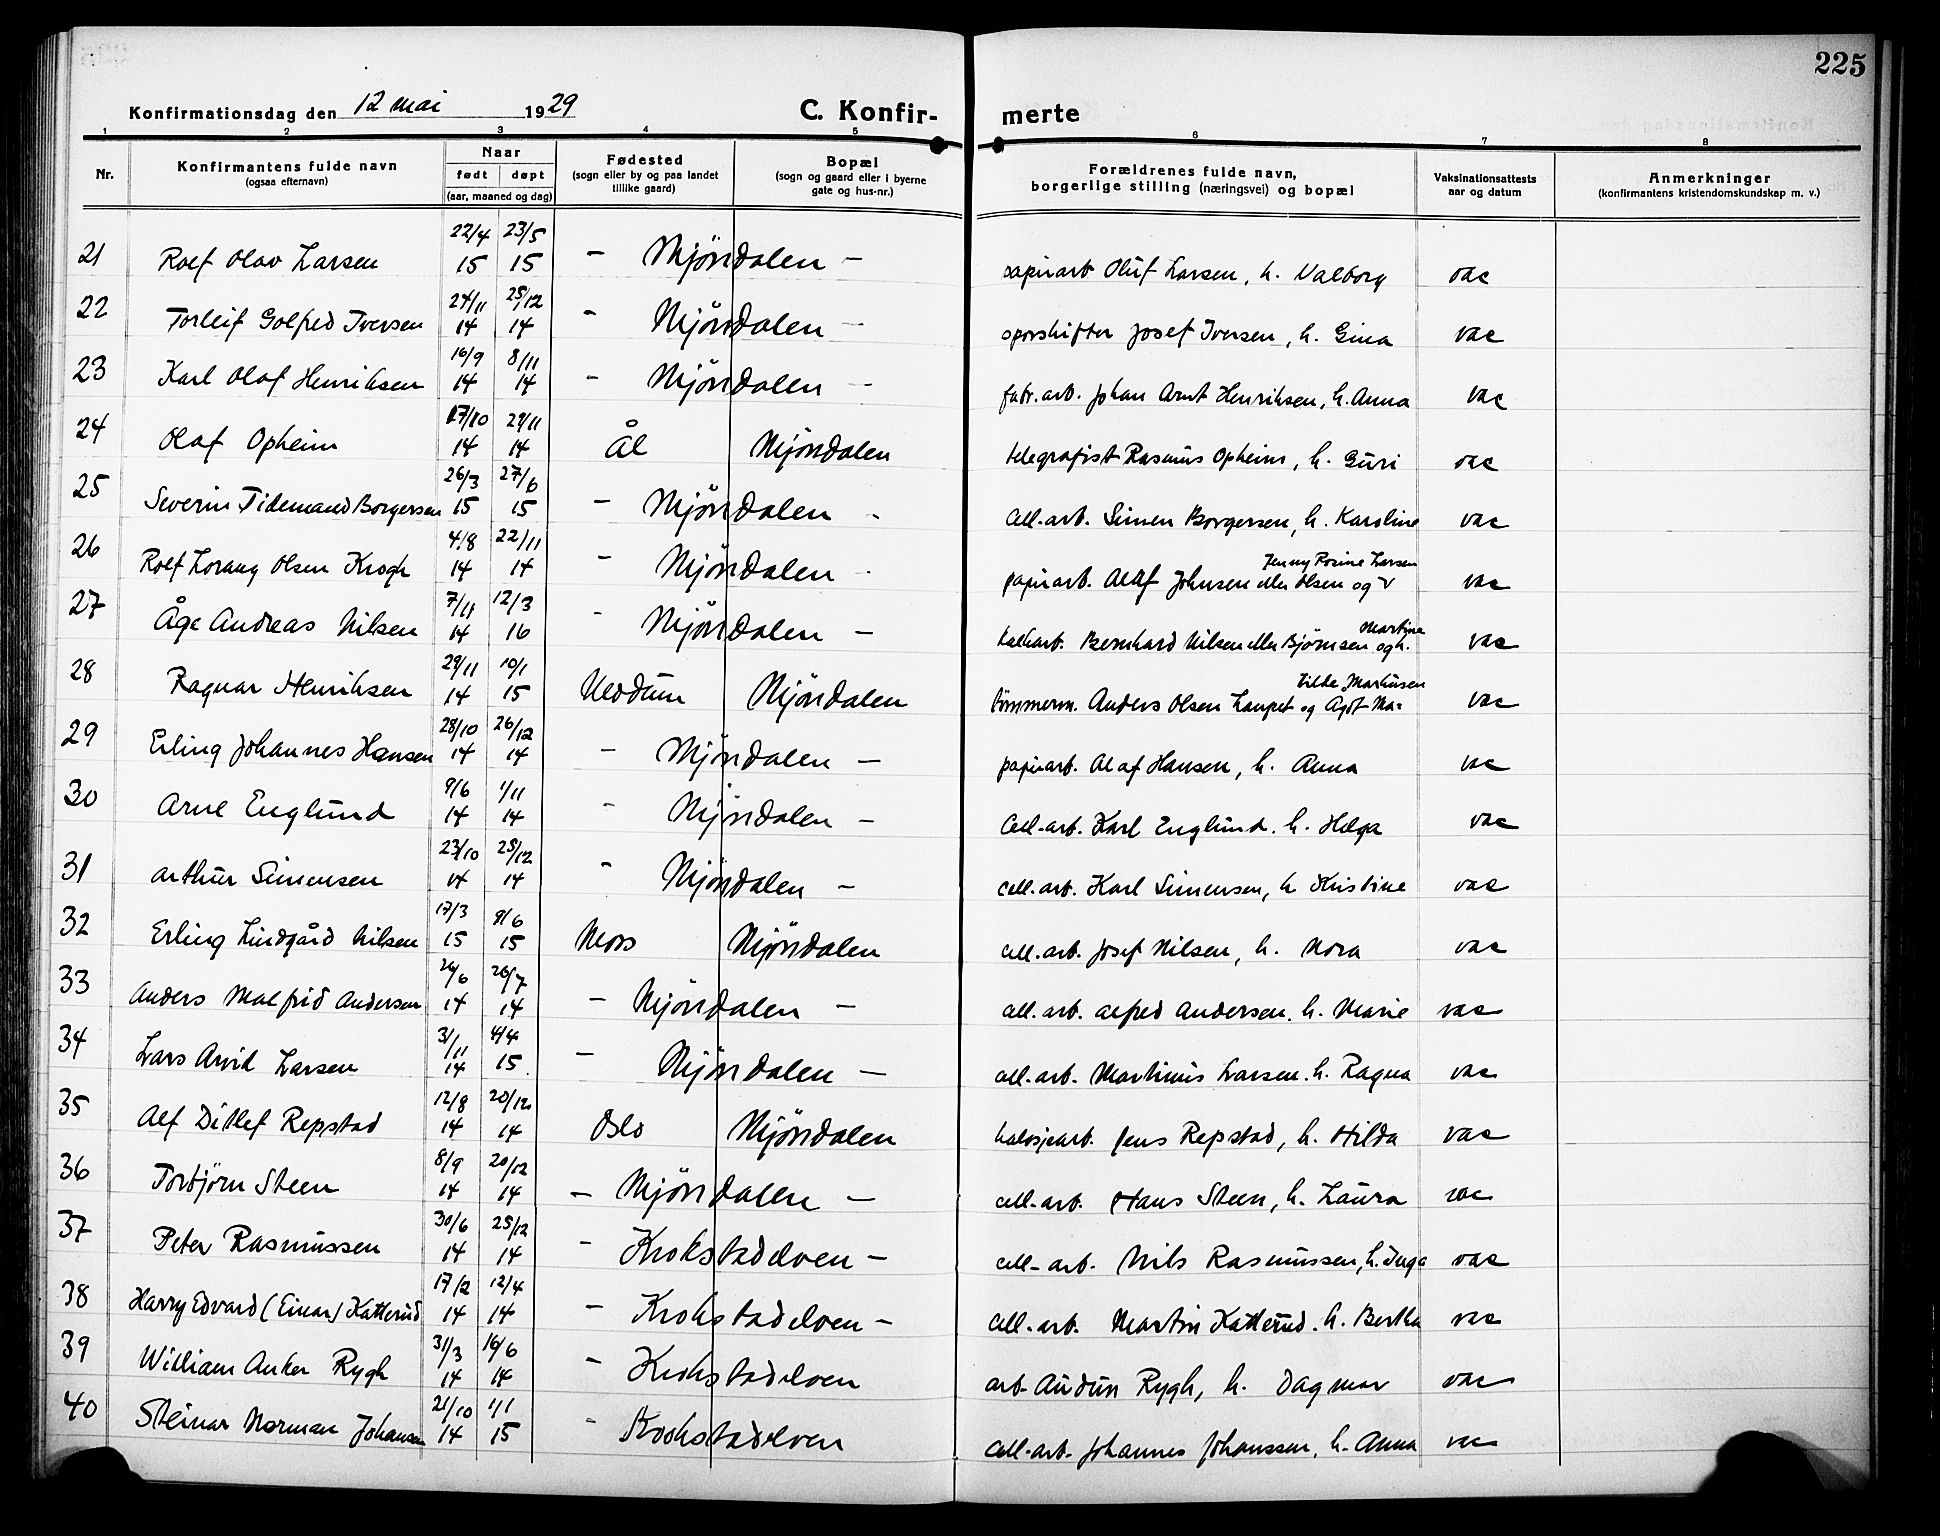 225
Konfirmationsdag den 12 mai 1929 C. Konfir- merte
1 2 3 4 5 6 7 8
Nr. Konfirmantens fulde navn (ogsaa efternavn) Naar født døpt (aar, maaned og dag) Fødested (sogn eller by og paa landet tillike gaard) Bopæl (sogn og gaard eller i byerne gate og hus-nr.) Forældrenes fulde navn, borgerlige stilling (næringsvei) og bopæl Vaksinationsattests aar og datum Anmerkninger (konfirmantens kristendomskundskap m. v.)
21 Rolf Olav Larsen 22/4 15 23/5 15 - Mjöndalen - papirarb Oluf Larsen, h. Valborg vac
22 Torleif Golfred Iversen 24/11 14 25/12 14 - Mjöndalen - sporskifter Josef Iversen, h. Gina vac
23 Karl Olaf Henriksen 16/9 14 8/11 14 - Mjöndalen - fabr. arb. Johan Arnt Henriksen, h. Anna vac
24 Olaf Opheim 17/10 14 29/11 14 Ål Mjöndalen telegrafist Rasmus Opheim, h. Guri vac
25 Severin Tidemand Borgersen 26/3 15 27/6 15 - Mjöndalen - cell-arb. Simen Borgersen, h. Karoline vac
26 Rolf Lorang Olsen Krogh 4/8 14 22/11 14 - Mjöndalen - papirarb. Olaf Johnsen eller Olsen og Jenny Rosine Larsen vac
27 Åge Andreas Nilsen 7/11 14 12/3 16 - Mjöndalen - kalkarb. Bernhard Nilsen eller Bjørnsen og h. Martine vac
28 Ragnar Henriksen 29/11 14 10/1 15 Neddum Mjöndalen tömmerm. Anders Olsen Langet og Agot Ma= tilde Markusen vac
29 Erling Johannes Hansen 28/10 14 26/12 14 - Mjöndalen - papirarb. Olaf Hansen, h. Anna vac
30 Arne Englund 9/6 14 1/11 14 - Mjöndalen - Cell-arb. Karl Englund. h. Helga vac
31 Arthur Simensen 23/10 14 25/12 14 - Mjöndalen - cell. arb. Karl Simensen, h Kristine vac
32 Erling Lindgård Nilsen 17/3 15 9/6 15 Moss Mjöndalen cell. arb. Josef Nilsen, h. Nora vac
33 Anders Malfrid Andersen 26/6 14 26/7 14 - Mjöndalen - cell. arb. Alfred Andersen. h. Marie vac
34 Lars Arvid Larsen 3/11 14 4/4 15 - Mjöndalen - cell. arb. Martinus Larsen. h. Ragna vac
35 Alf Ditlef Repstad 12/8 14 20/12 14 Oslo Mjöndalen kalosjearb. Jens Repstad, h. Hilda vac
36 Torbjørn Steen 8/9 14 20/12 14 - Mjöndalen - cell-arb. Hans Steen, h. Laura vac
37 Peter Rasmussen 30/6 14 25/12 14 - Krokstadelven - cell-arb. Nils Rasmussen, h. Inga vac
38 Harry Edvard (Einar) Katterud 17/2 14 12/4 14 - Krokstadelven - cell. arb. Martin Katterud. h. Bertha vac
39 William Anker Rygh 31/3 14 16/6 14 - Krokstadelven arb Audun Rygh, h. Dagmar vac
40 Steinar Norman Johansen 21/10 14 1/1 15 - Krokstadelven cell-arb. Johannes Johanssen, h. Anna vac